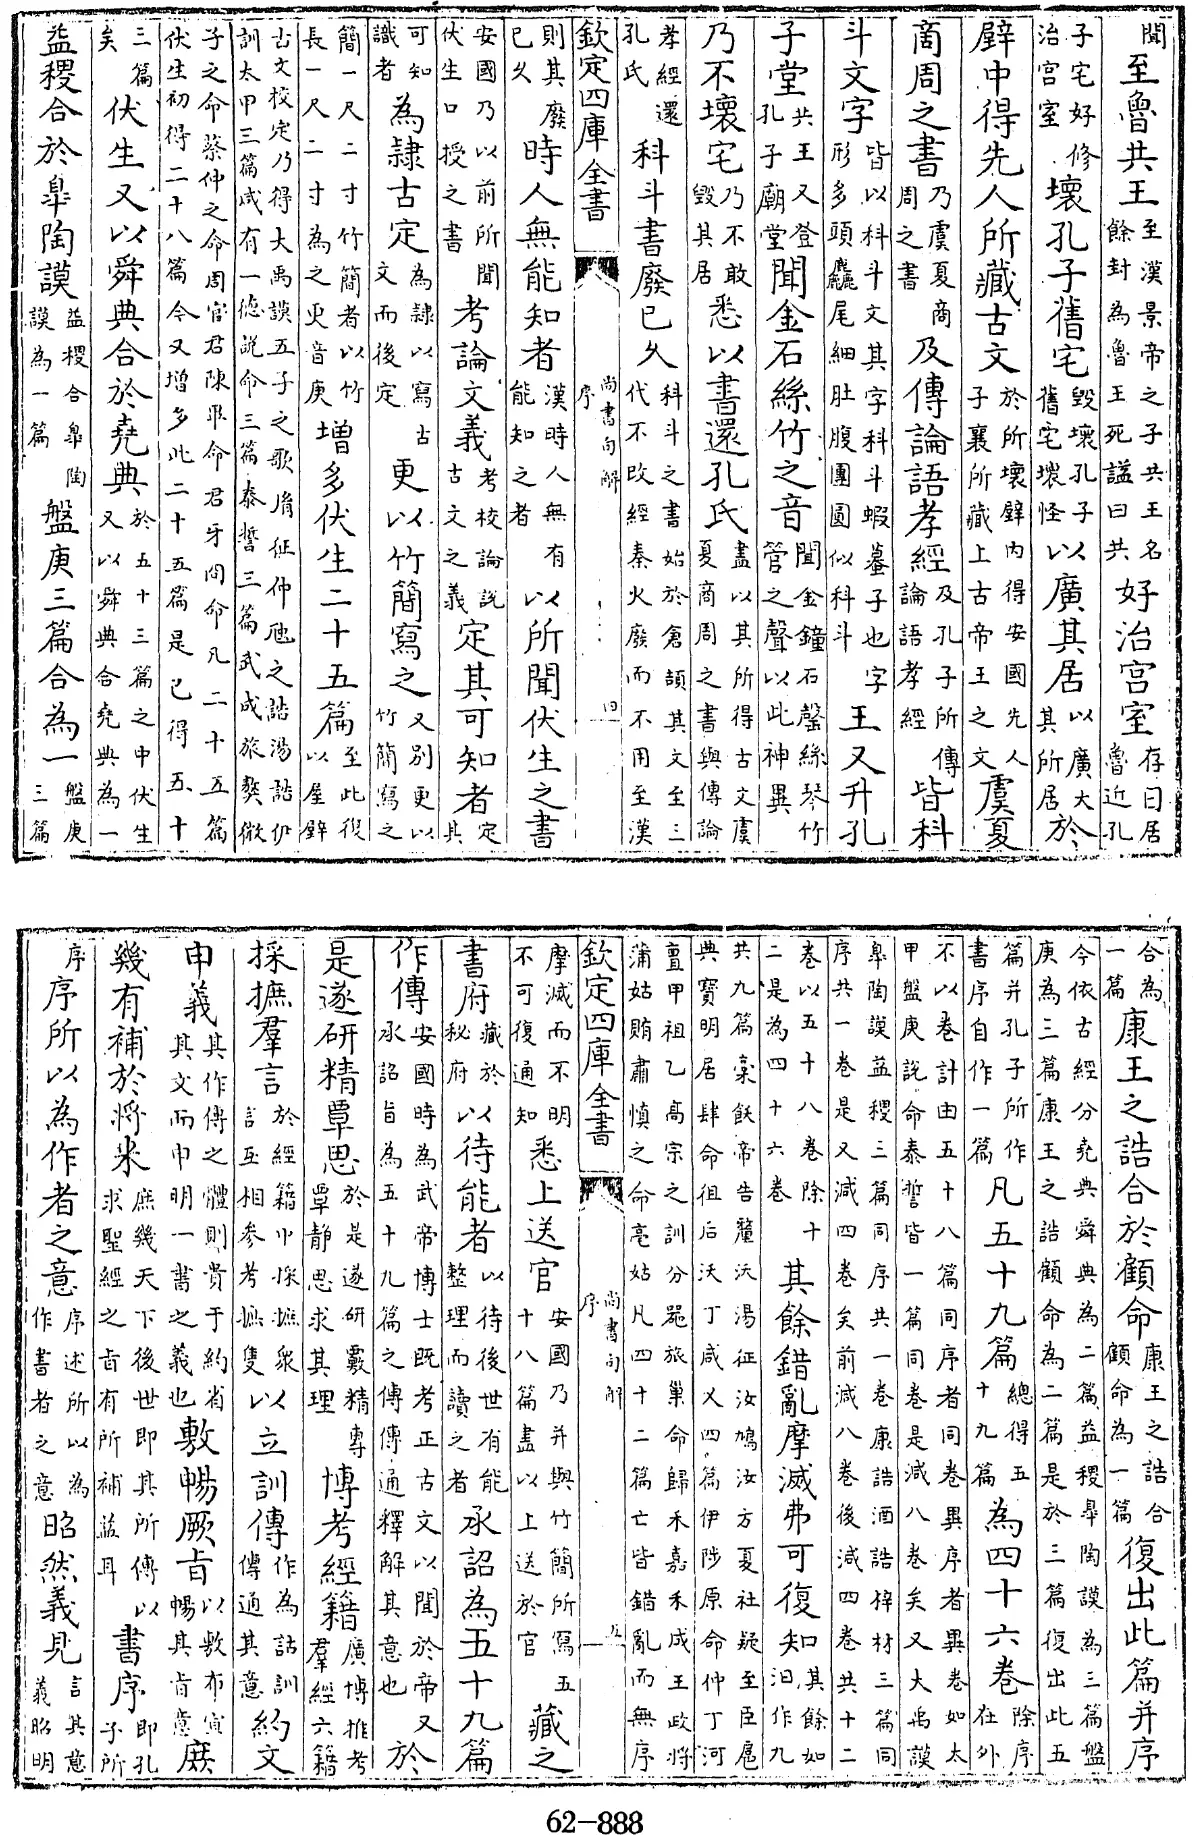 聞至魯共王至漢景帝之子共王名餘封為魯王死諡曰共好治宫室存日居魯近孔
子宅好修治宫室壞孔子舊宅毁壞孔子舊宅壊怪以廣其居以廣大其所居於
壁中得先人所藏古文於所壊壁内得安國先人子襄所藏上古帝王之文虞夏
商周之書乃虞夏商周之書及傳論語孝經及孔子所傳論語孝經皆科
斗文字皆以科斗文其字科斗蝦蟇子也字形多頭麤尾細肚腹團圓似科斗王又升孔
子堂共王又登孔子廟堂聞金石絲竹之音聞金鐘石磬絲琴竹管之聲以此神異
乃不壞宅乃不敢毁其居悉以書還孔氏盡以其所得古文虞夏商周之書與傳論
孝經還孔氏科斗書廢已久科斗之書始於倉頡其文至三代不改經秦火廢而不用至漢
欽定四庫全書 尚書句解序 四
則其廢已久時人無能知者漢時人無有能知之者以所聞伏生之書
安國乃以前所聞伏生口授之書考論文義考校論說古文之義定其可知者定其
可知識者為隸古定為隸以寫古文而後定更以竹簡寫之又别更以竹簡寫之
簡一尺二寸竹簡者以竹長一尺二寸為之更音庚增多伏生二十五篇至此復以屋壁
古文校定乃得大禹謨五子之歌胤征仲虺之誥湯誥伊訓太甲三篇咸有一德說命三篇泰誓三篇武成旅獒微
子之命蔡仲之命周官君陳畢命君牙冏命凡二十五篇伏生初得二十八篇今又增多此二十五篇是已得五十
三篇矣伏生又以舜典合於堯典於五十三篇之中伏生又以舜典合堯典為一
益稷合於臯陶謨益稷合臯陶謨為一篇盤庚三篇合為一盤庚三篇
合為一篇康王之誥合於顧命康王之誥合顧命為一篇復出此篇并序
今依古經分堯典舜典為二篇益稷臯陶謨為三篇盤庚為三篇康王之誥顧命為二篇是於三篇復出此五
篇并孔子所作書序自作一篇凡五十九篇總得五十九篇為四十六卷除序在外
不以卷計由五十八篇同序者同卷異序者異卷如太甲盤庚說命泰誓皆一篇同卷是減八卷矣又大禹謨
臯陶謨益稷三篇同序共一卷康誥酒誥梓材三篇同序共一卷是又減四卷矣前減八卷後減四卷共十二
卷以五十八卷除十二是為四十六卷其餘錯亂摩滅弗可復知其餘如汩作九
共九篇槀飫帝告釐沃湯征汝鳩汝方夏社疑至臣扈典寶明居肆命徂后沃丁咸乂四篇伊陟原命仲丁河
亶甲祖乙高宗之訓分器旅巢命歸禾嘉禾成王政將蒲姑賄肅慎之命亳姑凡四十二篇亡皆錯亂而無序
欽定四庫全書 尚書句解序 五
摩滅而不明不可復通知悉上送官安國乃并與竹簡所寫五十八篇盡以上送於官藏之
書府藏於秘府以待能者以待後世有能整理而讀之者承詔為五十九篇
作傳安國時為武帝博士既考正古文以聞於帝又承詔旨為五十九篇之傳傳通釋解其意也於
是遂研精覃思於是遂研覈精專覃靜思求其理博考經籍廣博推考羣經六籍
採摭羣言於經籍中採摭衆言互相參考摭隻以立訓傳作為詁訓傳通其意約文
申義其作傳之體則貴于約省其文而申明一書之義也敷暢厥旨以敷布宣暢其旨意庶
幾有補於將來庶幾天下後世即其所傳以求聖經之旨有所補益耳書序即孔子所
序序所以為作者之意序述所以為作書者之意昭然義見言其意義昭明
62-888